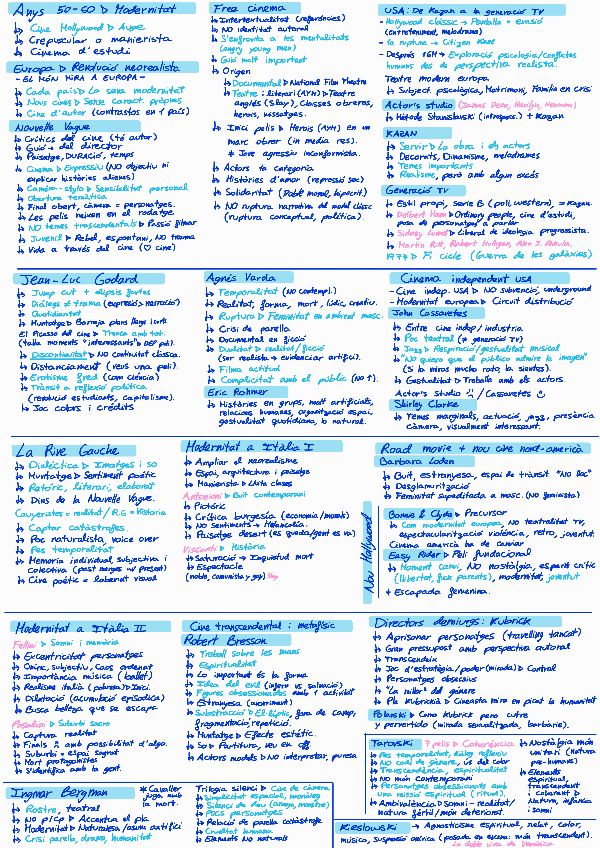 Anys 50-60 ▷ Modernitat
↳ Cine Hollywood ▷ Auge
↳ Crepuscular o manierista
↳ Cinema d'estudi
Europa ▷ Revolució neorealista
- EL MÓN MIRA A EUROPA -
↳ Cada país ▷ La seva modernitat
↳ Nous cines ▷ Sense caràct. pròpies
↳ Cine d'autor (contrastos en 1 país)
Nouvelle Vague
↳ Crítics del cine (té autor)
↳ Guió → del director
↳ Paisatge, DURACIÓ, temps
↳ Cinema ▷ Expressiu (NO objectiu ni
explicar històries alienes)
↳ Caméra-stylo ▷ Sensibilitat personal
↳ Obertura temàtica
↳ Final obert, càmera = personatges.
↳ Les pelis neixen en el rodatge
↳ NO temes trascendentals ▷ Passió filmar
↳ Juvenil ▷ Rebel, espontani, NO trama
↳ Vida a través del cine (♡ cine)
Free cinema
↳ Intertextualitat (referències)
↳ NO identitat autoral
↳ S'enfronta a les mentalitats
(angry young men)
↳ Guió molt important
↳ Origen
↳ Documental ▷ National Film Theatre
↳ Teatre i literari (AYM) ▷ Teatre
anglés (Slay), Classes obreres,
herois, missatges.
↳ Inici pelis ▷ Herois (AYM) en un
marc obrer (in media res).
* Jove agressiu inconformista.
↳ Actors la categoria
↳ Històries d'amor (repressió sex)
↳ Solidaritat (Doble moral, hipòcrit.)
↳ NO ruptura narrativa del model clàssic
(ruptura conceptual, política).
USA: De Kazan a la generació TV
- Hollywood clàssic → Pantalla = evasió
(entreteniment, melodrama)
- La ruptura → Citizen Kane
- Després IIGM → Exploració psicològica/conflictes
humans des de perspectiva realista.
Teatre modern europa
↳ Subject. psicològica, Matrimoni, Família en crisi
Actor's studio (James Dean, Marilyn, Newman)
↳ Mètode Stanislavski (introspec.) + Kazan
KAZAN
↳ Servir ▷ La obra i els actors
↳ Decorats, Dinamisme, melodrames
↳ Temes importants
↳ Realisme, però amb algun excés
Generació TV
↳ Estil propi, sèrie B (poli, western), ≠ Kazan.
↳ Delbert Mann ▷ Ordinary people, cine d'estudi,
posa de personatges a parlar
↳ Sidney Lumet ▷ Liberal de ideologia progressista.
↳ Martin Ritt, Robert Mulligan, Alan J. Pakula.
1977 ▷ Fi cicle (Guerra de les galàxies)
Jean-Luc Godard
↳ Jump cut + el·lipsis fortes
↳ Diàlegs ≠ trama (expressió > narració)
↳ Quotidianitat
↳ Muntatge ▷ Barreja plans llargs i curts
El Picasso del cine ▷ Trenca amb tot.
(talla moments "interessants" ▷ DEF peli).
↳ Discontinuïtat ▷ NO continuïtat clàssica.
↳ Distanciament (veus una peli).
↳ Erotisme fred (com ciència)
↳ Trànsit a reflexió política.
(revolució estudiants, capitalisme).
↳ Joc colors i crèdits
Agnès Varda
↳ Temporalitat (NO contempl.)
↳ Realitat, forma, mort, lúdic, creatiu.
↳ Ruptura ▷ Feminitat en ambient masc.
↳ Crisi de parella
↳ Documental en ficció
↳ Dualitat ▷ realitat/ficció
(ser realista → evidenciar artifici).
↳ Filma actitud
↳ Complicitat amb el públic (NO ↑).
Eric Rohmer
↳ Històries en grups, molt artificials,
relacions humanes, organització espai,
gestualitat quotidiana, b. natural.
Cinema independent USA
- Cine indep. USA ▷ NO subvenció, underground
- Modernitat europea ▷ Circuit distribució
John Cassavetes
↳ Entre cine indep/industria.
↳ Poc teatral (≠ generació TV)
↳ Jazz ▷ Respiració/gestualitat musical
↳ "No quiero que el público admire la imagen"
(Si la miras mucho rato, la sientes).
↳ Gestualitat ▷ Treballa amb els actors.
Actor's Studio / Cassavetes
Shirley Clarke
↳ Temes marginals, actuació, jazz, presència
càmera, visualment interessant.
La Rive Gauche
↳ Dialèctica ▷ Imatges i so
↳ Muntatge ▷ Sentiment poètic
↳ Retòric, literari, elaborat
↳ Dins de la Nouvelle Vague.
Canyeristes = realitat / R.G = Història
↳ Captar catàstrofes.
↳ Poc naturalista, voice over
↳ Pes temporalitat
↳ Memòria individual, subjectiva i
col·lectiva (post marges → present)
↳ Cine poètic = laberint visual
Modernitat a Itàlia I
↳ Ampliar el neorealisme.
↳ Espai, arquitectura i paisatge
↳ Manierista ▷ Lluita classes
Antonioni ▷ Buit contemporani
↳ Pictòric
↳ Crítica burgesia (economia/moral)
↳ NO Sentiments → Melancolia.
↳ Paisatge desert (es queda/gent es va)
Visconti ▷ Història
↳ Saturació → Inquietud mort
↳ Espectacle
(noble, comunista y gay) Slay
Road movie + nou cine nord-americà
Barbara Loden
↳ Buit, estranyesa, espai de trànsit "NO lloc"
↳ Desglamurització
↳ Feminitat supeditada a masc. (NO feminista)
Nou Hollywood
Bonnie & Clyde ▷ Precursor
↳ Com modernitat europea, NO teatralitat TV,
espectacularització violència, retro, joventut.
Cinema amèrica ha de canviar
Easy Rider ▷ Peli fundacional
↳ Moment canvi, NO nostàlgia, esperit crític
(llibertat, fuck parents), modernitat, joventut
+ Escapada femenina.
Modernitat a Itàlia II
Fellini ▷ Somni i memòria
↳ Excentricitat personatges
↳ Oníric, subjectiu, Caos ordenat
↳ Importància música (ballet)
↳ Realisme itàlia (pobresa) ▷ Inici.
↳ Dilatació (acumulació episòdica)
↳ Busca bellesa que se escapa.
Pasolini ▷ Suburbi sacro
↳ Captura realitat
↳ Finals → amb possibilitat d'algo.
↳ Suburbi = espai sagrat
↳ Mort protagonistes
↳ S'identifica amb la gent.
Cine transcendental i metafísic
Robert Bresson
↳ Treball sobre les mans
↳ Espiritualitat
↳ Lo important és la forma
↳ Idea del evil (infern vs salvació)
↳ Figures obsessionades amb 1 activitat
↳ Estranyesa (anorment)
↳ Substracció ▷ El·líptic, fora de camp,
fragmentació, repetició.
↳ Muntatge ▷ Efecte estètic.
↳ So ▷ Partitura, veu en off
↳ Actors models ▷ NO interpretar, puresa
Directors demiurgs: Kubrick
↳ Aprisonar personatges (travelling tancat)
↳ Gran pressupost amb perspectiva autoral
↳ Transcendeix
↳ Joc d'estratègia/poder (mirada) ▷ Control
↳ Personatges obsessius
↳ "La millor" del gènere
↳ Plà Kubrickià ▷ Cineasta mira en picat la humanitat
Polanski ▷ Como Kubrick pero cutre
y pervertido (mirada sexualitzada, barbàrie).
Ingmar Bergman
↳ Rostre, teatral
↳ NO p/cp ▷ Accentua el pla.
↳ Modernitat ▷ Naturalesa/assumir artifici
↳ Crisi parella, drama, humanitat
* Cavaller
juga amb
la mort.
Trilogia silenci ▷ Cine de càmera
↳ Simplicitat espacial, monòleg
↳ Silenci de deu (aranya, monstre)
↳ Pocs personatges
↳ Relació de parella catàstrofe
↳ Crueltat humana
↳ Elements NO naturals
Tarkovski 7 pelis ▷ Coherència
↳ Pes temporalitat, llarg reflexiu
↳ NO codi de gènere, ús del color
↳ Transcendència, espiritualitat
↳ NO món contemporani
↳ Personatges obsessionats amb
una missió espiritual (ritual).
↳ Ambivalència ▷ Somni - realitat/
natura fèrtil/món deteriorat.
↳ Nostàlgia món
unitari (natura
pre-humans)
↳ Elements
espiritual,
transcendent
i coherent ▷
Natura, infància
i somni
Kieslowski → Agnosticisme espiritual, relat, color,
música, suspensió onírica (posada en escena: món transcendent).
La doble vida de Verònica